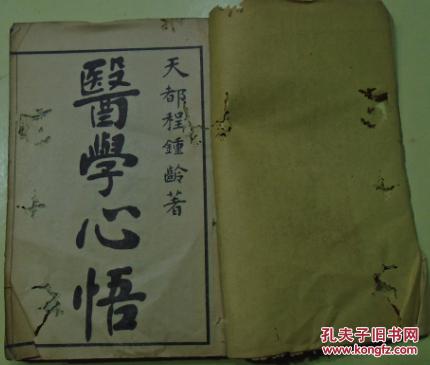 天都程鍾齡著
醫學心悟
孔夫子旧书网
www.kongfz.com